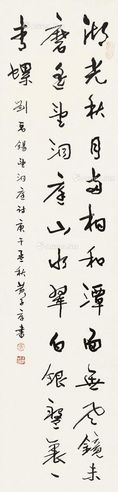 湖光秋月両相和潭面無風鏡未
磨遥望洞庭山水翠白銀盤裏一
青螺
劉禹錫望洞庭詩庚午秋黄子書